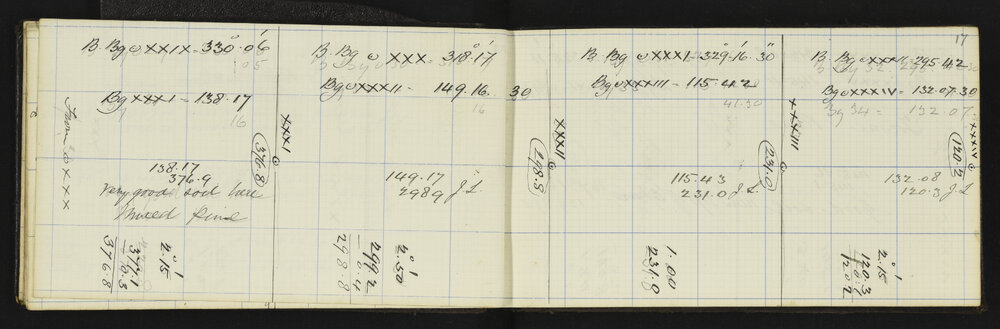 17
B. Bg ⊙ XXIX - 330° 06'
05
Bg XXXI - 138.17
16
From ⊙ XXX
XXXI
376.8
138.17
376.9
Very good soil here
Mixed Pine
2° 15'
377.1
- 0.3
376.8
B. Bg ⊙ XXX - 318° 17'
Bg ⊙ XXXII - 149.16.30
16
XXXII
298.8
149.17
298.9 J.L.
2° 50'
299.2
- 0.4
298.8
B. Bg ⊙ XXXI - 329° 16' 30"
Bg ⊙ XXXIII - 115.42
41.30
XXXIII
231.0
115.43
231.0 J.L.
1.00
231.0
B. Bg ⊙ XXXII - 295.42
30
Bg ⊙ XXXIV - 132.07.30
Bg 34 = 132.07
XXXIV
120.2
132.08
120.3 J.L.
2° 15'
120.3
- 0.1
120.2